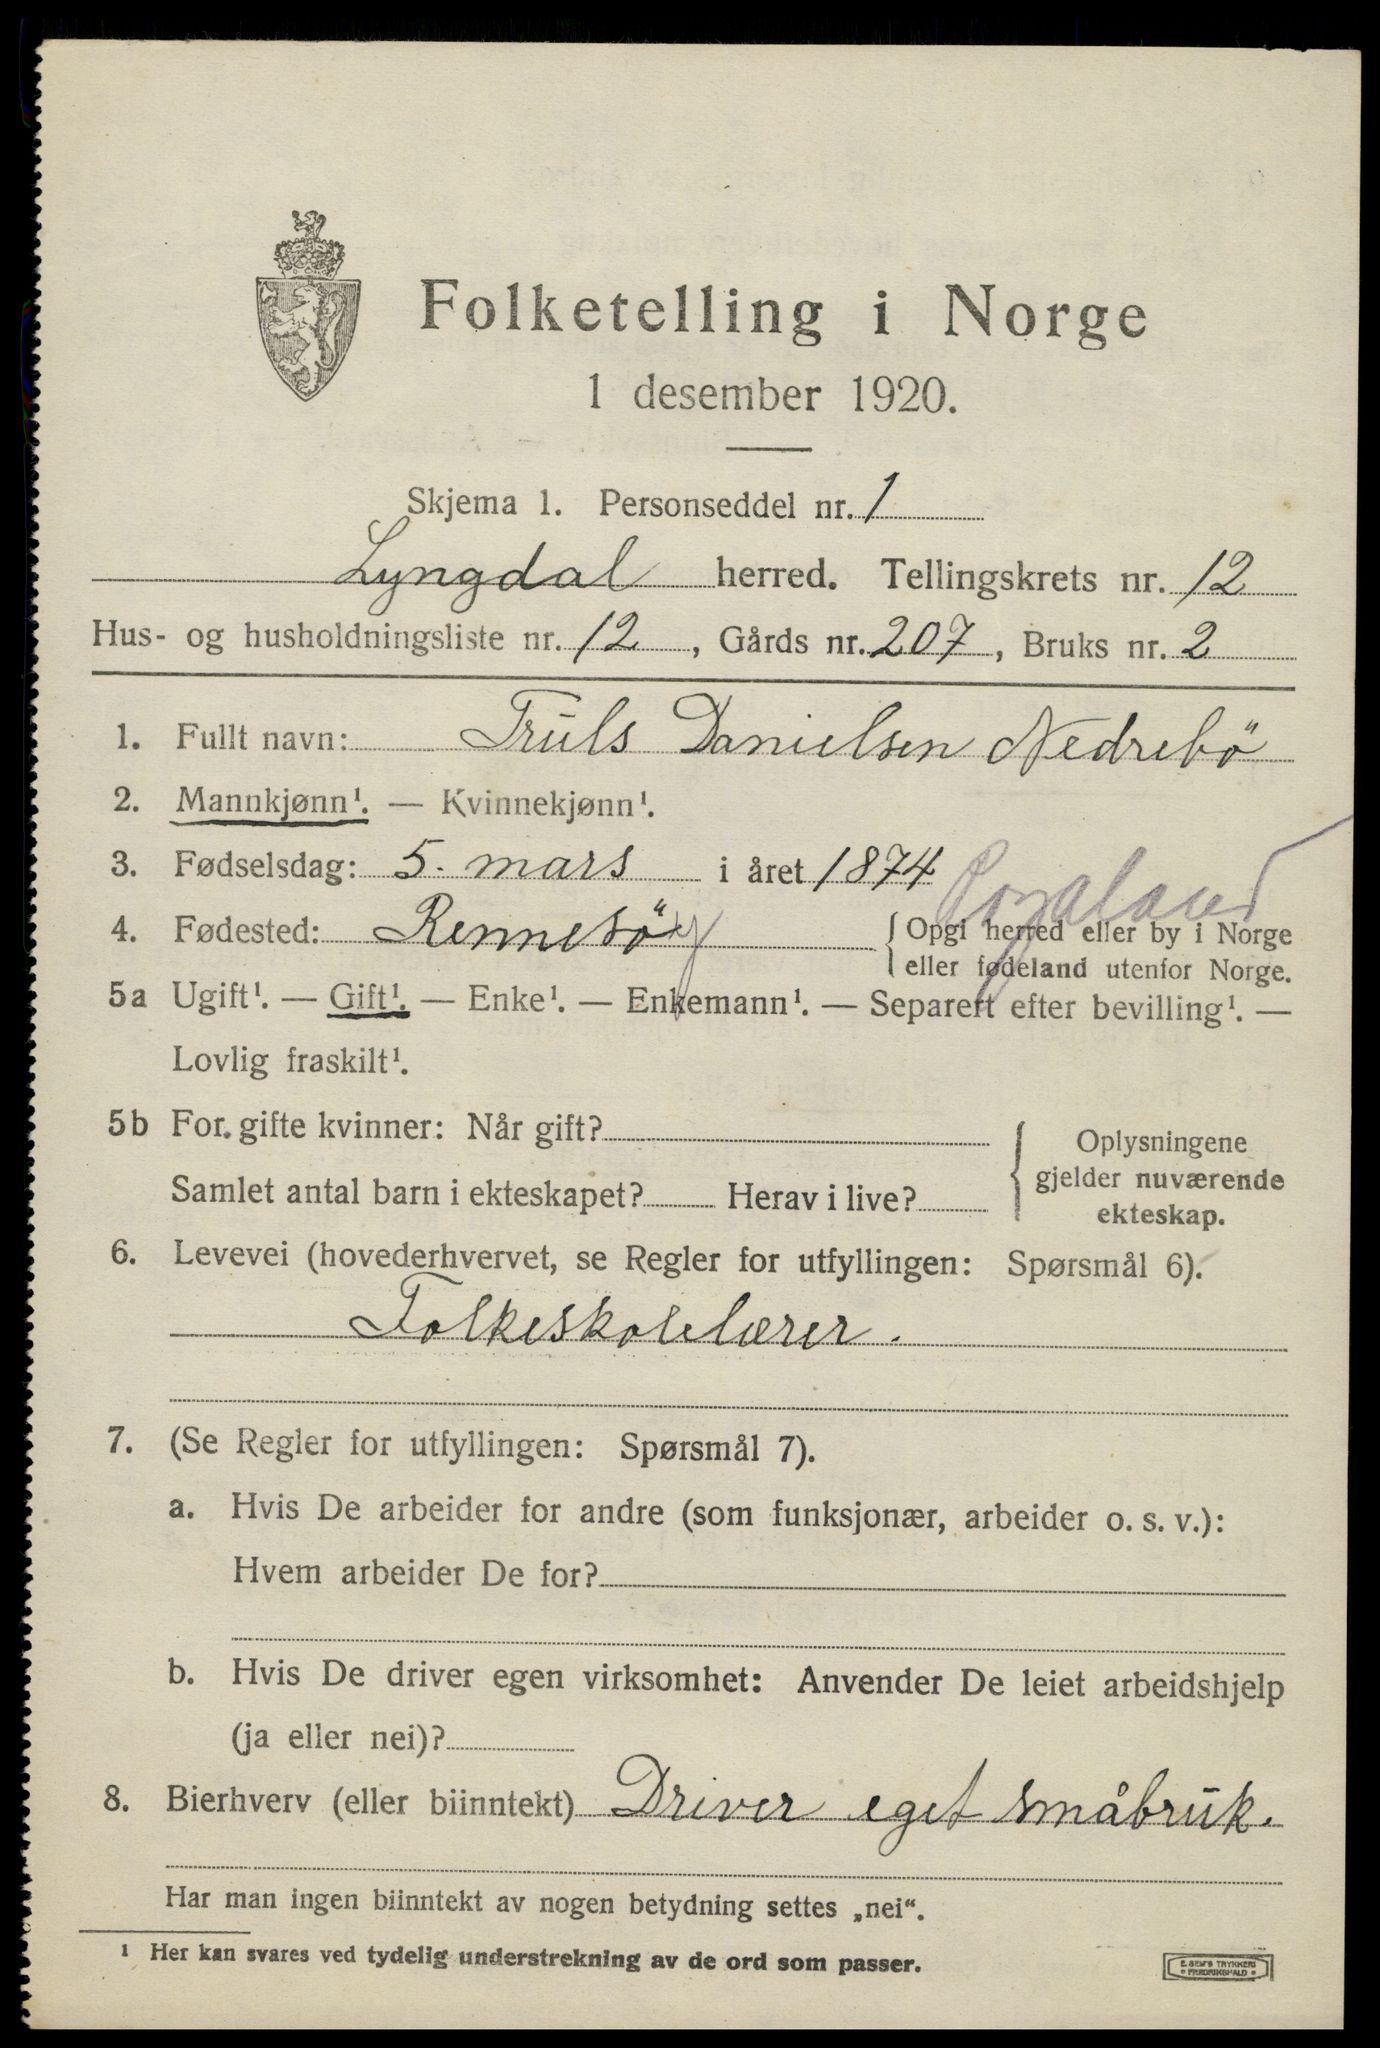 Folketelling i Norge
1 desember 1920.
Skjema 1. Personseddel nr. 1
Lyngdal herred. Tellingskrets nr. 12
Hus- og husholdningsliste nr. 12, Gårds nr. 207, Bruks nr. 2
1. Fullt navn: Truls Danielsen Nedrebö
2. Mannkjønn¹. — Kvinnekjønn¹.
3. Fødselsdag: 5. mars i året 1874
Rogaland
4. Fødested: Rennesöy { Opgi herred eller by i Norge
eller fødeland utenfor Norge.
5a Ugift¹. — Gift¹. — Enke¹. — Enkemann¹. — Separert efter bevilling¹. —
Lovlig fraskilt¹.
5b For gifte kvinner: Når gift?
Samlet antal barn i ekteskapet? Herav i live?
{ Oplysningene
gjelder nuværende
ekteskap.
6. Levevei (hovederhvervet, se Regler for utfyllingen: Spørsmål 6).
Folkeskolelærer.
7. (Se Regler for utfyllingen: Spørsmål 7).
a. Hvis De arbeider for andre (som funksjonær, arbeider o. s. v.):
Hvem arbeider De for?
b. Hvis De driver egen virksomhet: Anvender De leiet arbeidshjelp
(ja eller nei)?
8. Bierhverv (eller biinntekt) Driver eget småbruk.
Har man ingen biinntekt av nogen betydning settes „nei“.
¹ Her kan svares ved tydelig understrekning av de ord som passer.
E. SEM'S TRYKKERI
• FREDRIKSHALD •